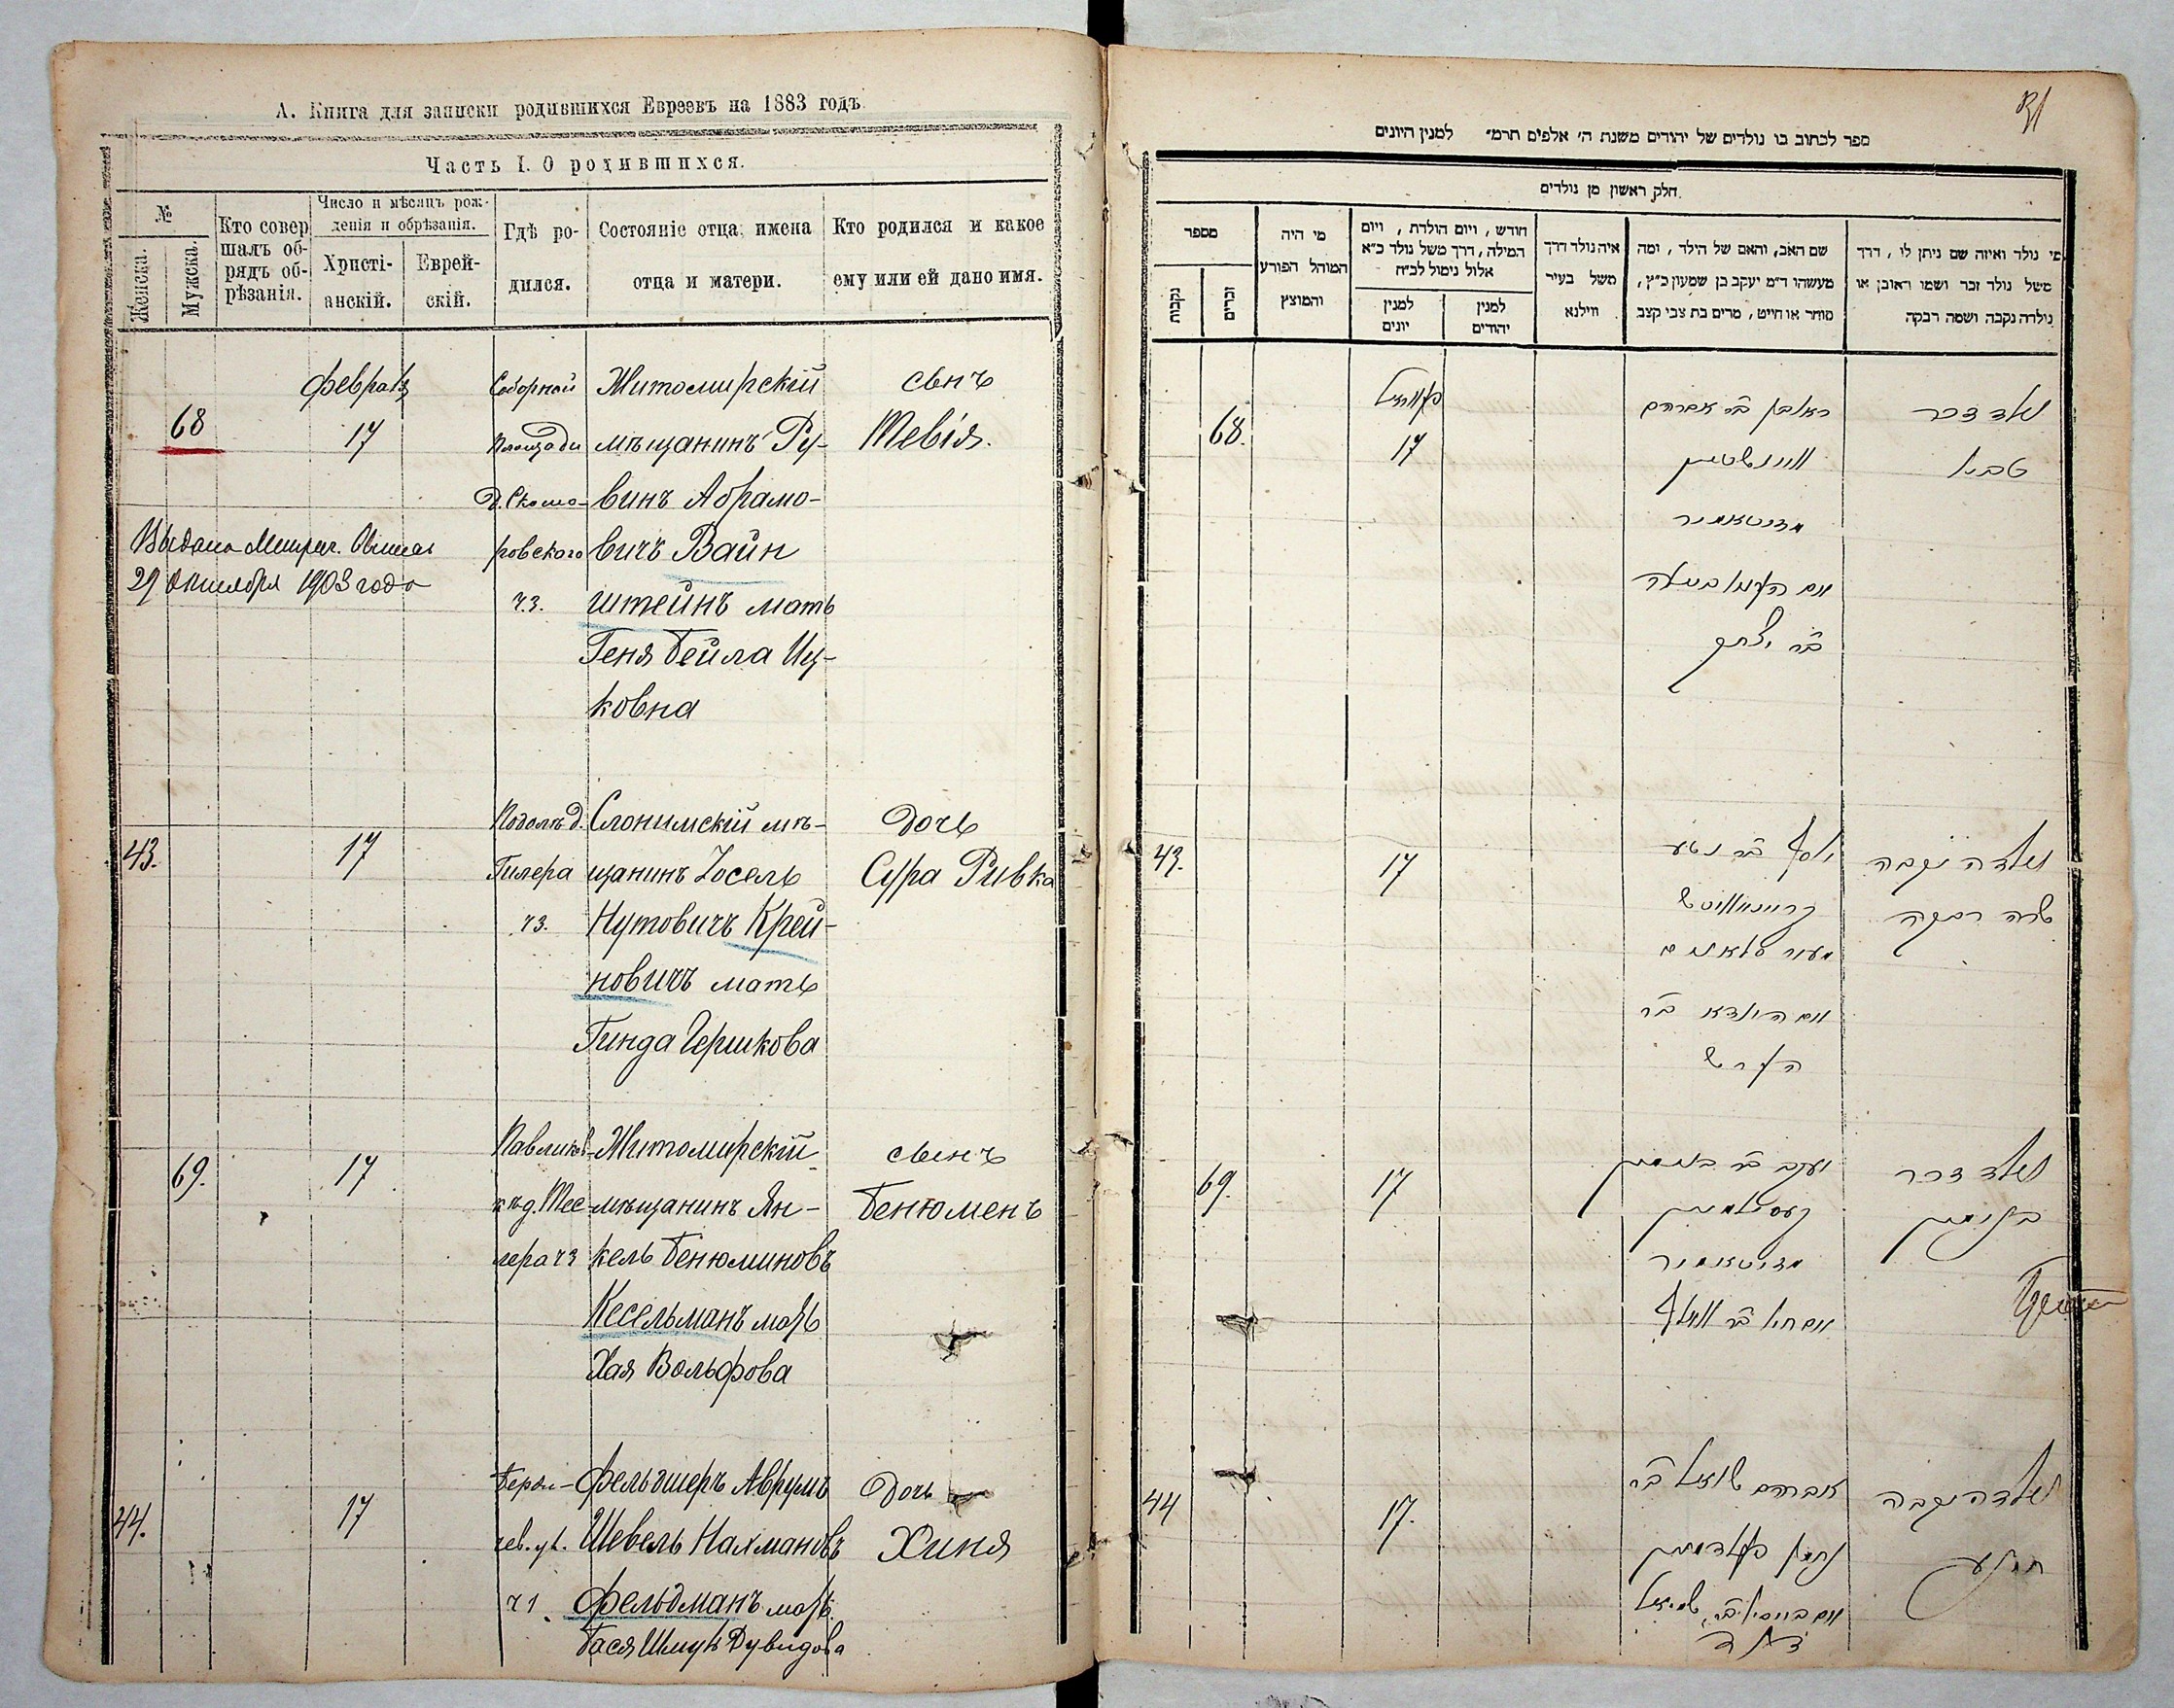 А. Книга для записки родившихся Евреевъ на 1883 годъ.
Часть I. О родившихся.
№
Женска.
Мужска.
Кто совер
шалъ об-
рядъ об-
рѣзанія.
Число и мѣсяцъ рож-
денія и обрѣзанія.
Христі-
анскій.
Еврей-
скій.
Гдѣ ро-
дился.
Состояніе отца, имена
отца и матери.
Кто родился и какое
ему или ей дано имя.
68
17
Соборной
Площади
ровского
ч.з.
Житомирскій
мѣщанинъ Ру-
винъ Абрамо-
вичъ Вайн
штейнъ мать
Геня Бейла Иц-
ковна
сынъ
Тевія.
29 Октября 1903 года
43.
17
Гилера
ч3.
Слонимскій мѣ-
щанинъ Іосель
Нутовичъ Крей-
новичъ мать
Гинда Гершкова
Дочь
Сура Ривка
69.
17
Житомирскій
мѣщанинъ Ян-
кель Бенюминовъ
Кесельманъ мать
Хая Вольфова
сынъ
Бенюменъ
44.
17
чев. ул.
ч1.
Фельдшеръ Аврумъ
Шевель Нахмановъ
Фельдманъ мать
Дочь
Хиня
31
ספר לכתוב בו נולדים של יהודים משנת ה׳ אלפים תרמ״ למנין היונים
חלק ראשון מן נולדים
מספר
נקבות
זכרים
מי היה
המוהל הפורע
והמוצץ
חודש, ויום הולדת, ויום
המילה, דרך משל נולד כ״א
אלול נימול לכ״ח
למנין
יונים
למנין
יהודים
איה נולד דרך
משל בעיר
ווילנא
שם האב, והאם של הילד, ומה
מעשהו ד״מ יעקב בן שמעון כ״ץ,
סוחר או חייט, מרים בת צבי קצב
מי נולד ואיזה שם ניתן לו, דרך
משל נולד זכר ושמו ראובן או
נולדה נקבה ושמה רבקה
68.
17
ראובן בר אברהם
וויינשטיין
מזיטאמיר
בר יצחק
נולד זכר
טביא
43.
17
יוסף בר נטע
קריינאוויטש
הירש
נולדה נקבה
שרה רבקה
69.
17
יעקב בר בנימין
קעסילמאן
מזיטאמיר
ואם חיה בר וואלף
נולד זכר
בנימין
44
17.
נחמן פעלדמאן
נולדה נקבה